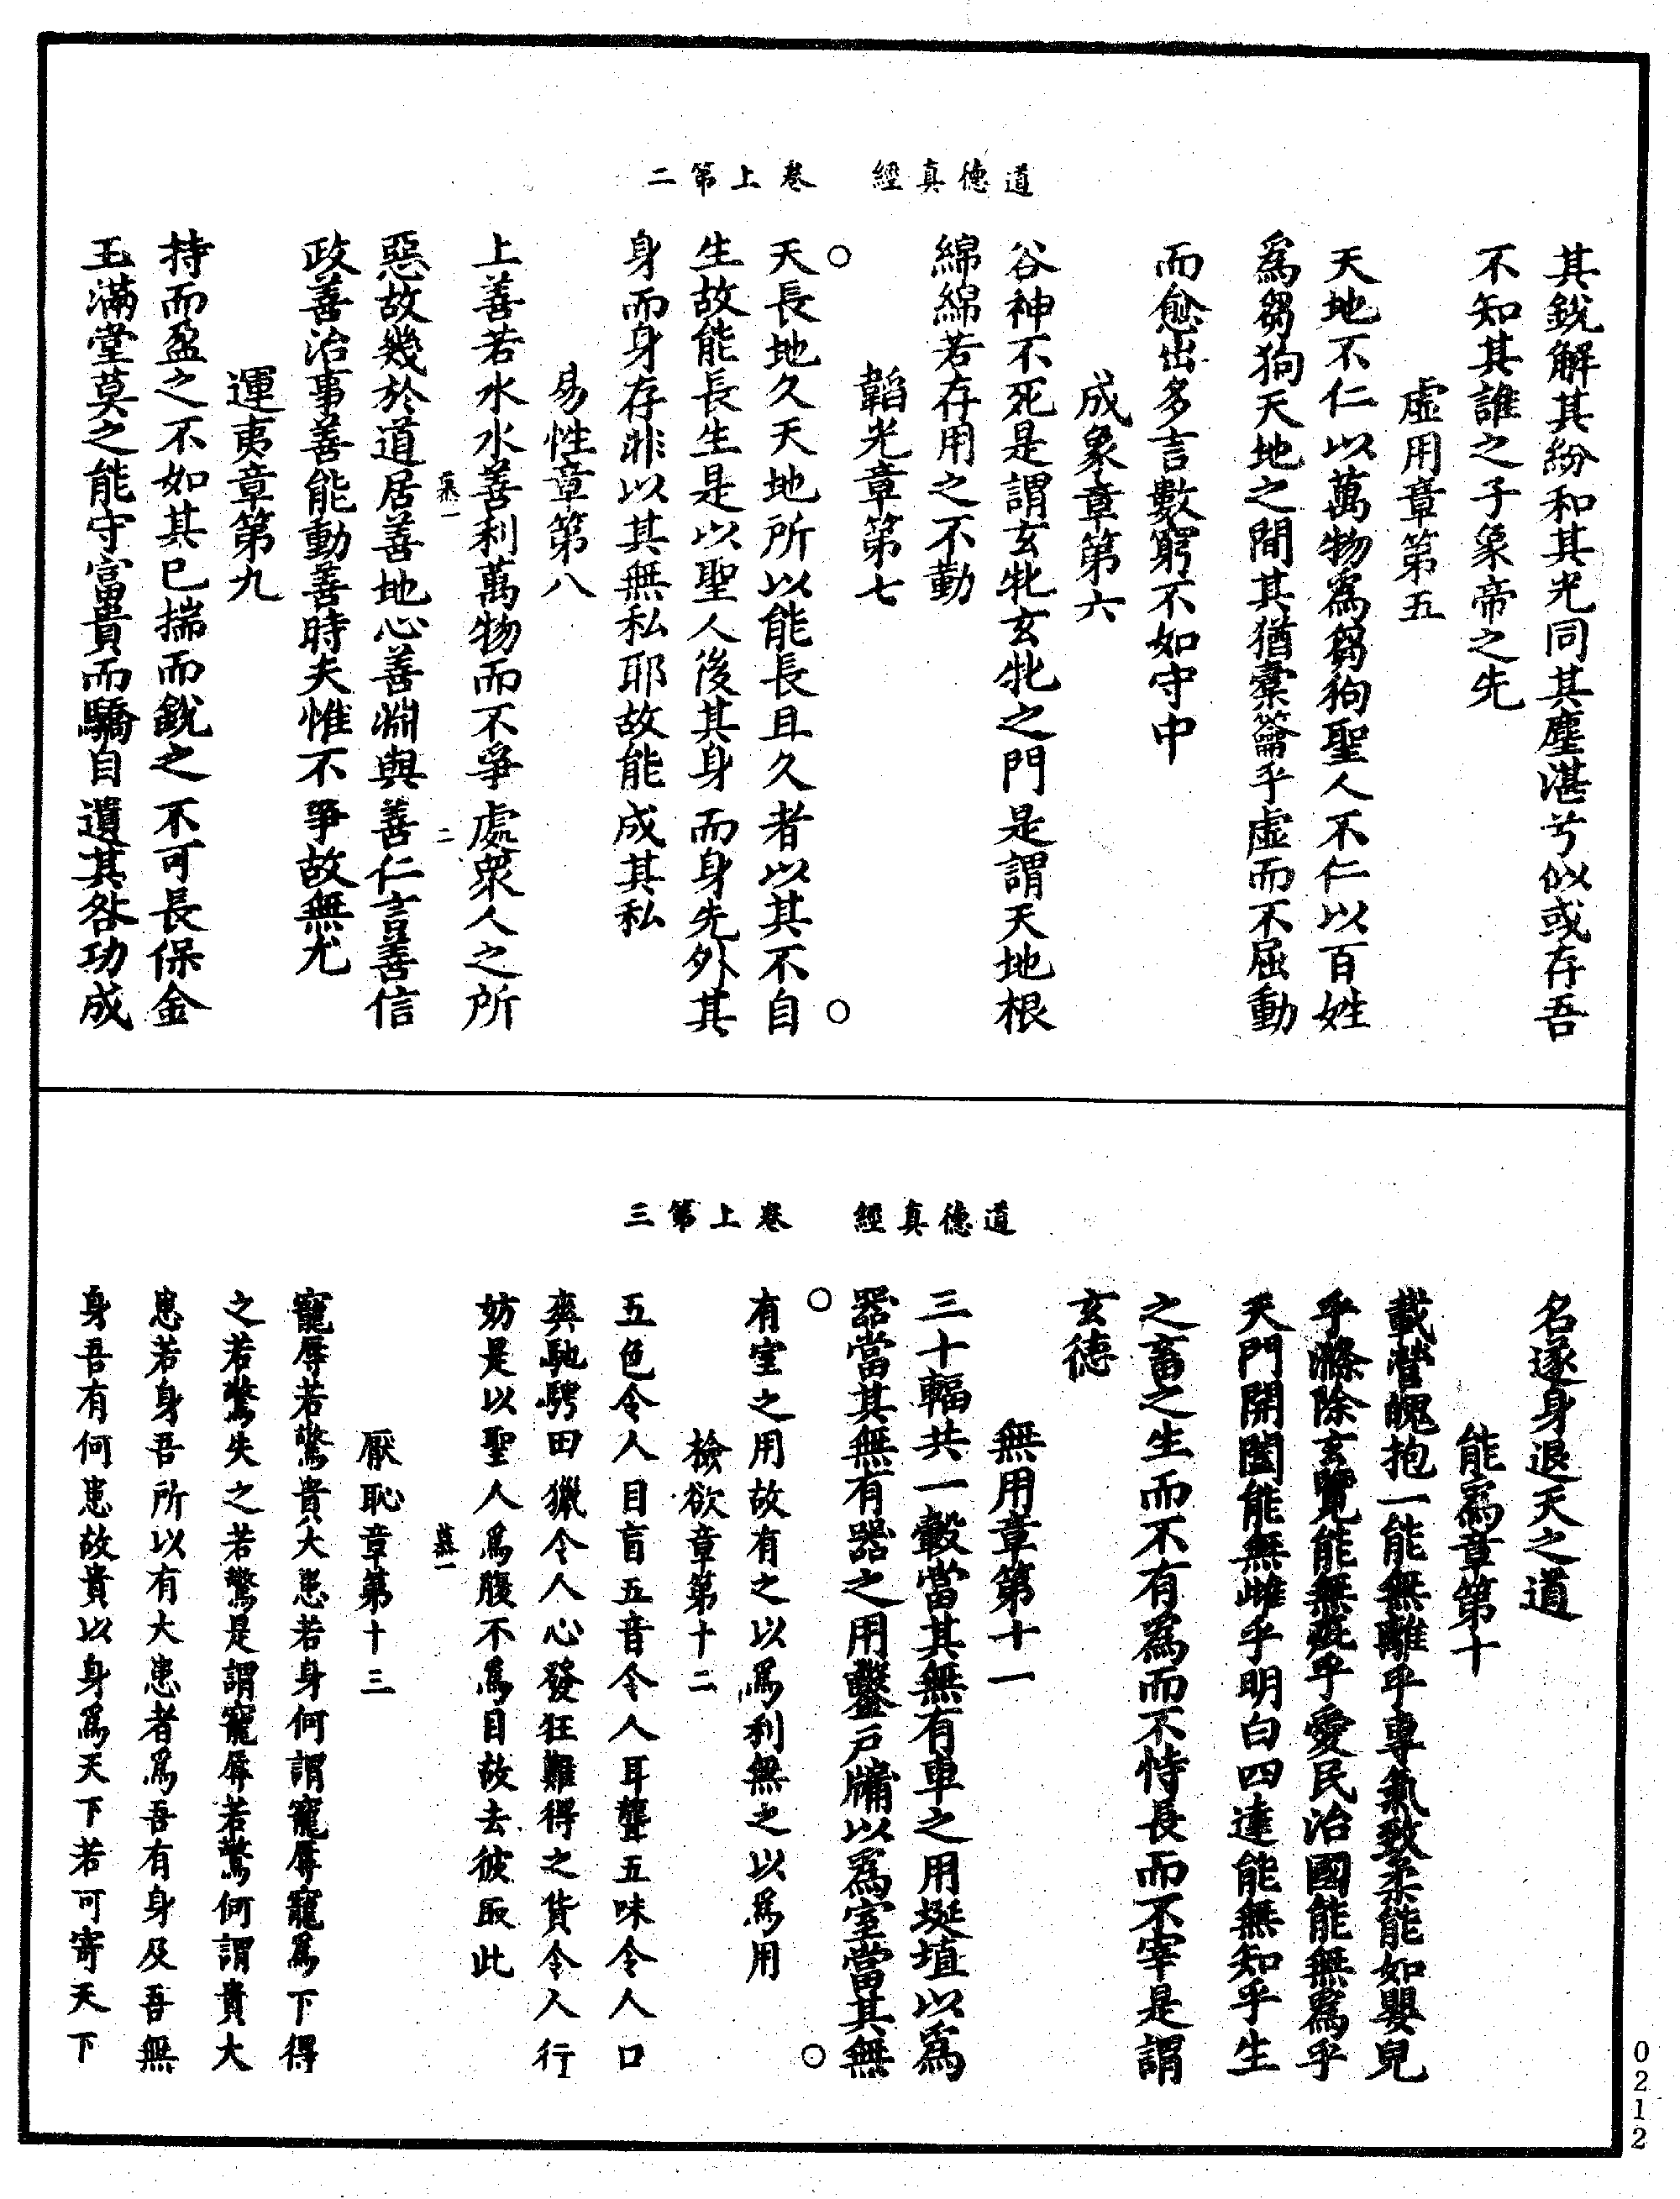 道德真經　卷上第二
其銳解其紛和其光同其塵湛兮似或存吾
不知其誰之子象帝之先
虛用章第五
天地不仁以萬物爲芻狗聖人不仁以百姓
爲芻狗天地之間其猶橐籥乎虛而不屈動
而愈出多言數窮不如守中
成象章第六
谷神不死是謂玄牝玄牝之門是謂天地根
綿綿若存用之不勤
韜光章第七
天長地久天地所以能長且久者以其不自
生故能長生是以聖人後其身而身先外其
身而身存非以其無私耶故能成其私
易性章第八
上善若水水善利萬物而不爭處衆人之所
二
惡故幾於道居善地心善淵與善仁言善信
政善治事善能動善時夫惟不爭故無尤
運夷章第九
持而盈之不如其已揣而銳之不可長保金
玉滿堂莫之能守富貴而驕自遺其咎功成
道德真經　卷上第三
名遂身退天之道
能爲章第十
載營魄抱一能無離乎專氣致柔能如嬰兒
乎滌除玄覽能無疵乎愛民治國能無爲乎
天門開闔能無雌乎明白四達能無知乎生
之畜之生而不有為而不恃長而不宰是謂
玄德
無用章第十一
三十輻共一轂當其無有車之用埏埴以爲
器當其無有器之用鑿戶牖以爲室當其無
有室之用故有之以爲利無之以爲用
檢欲章第十二
五色令人目盲五音令人耳聾五味令人口
爽馳騁田獵令人心發狂難得之貨令人行
妨是以聖人爲腹不爲目故去彼取此
厭恥章第十三
寵辱若驚貴大患若身何謂寵辱寵爲下得
之若驚失之若驚是謂寵辱若驚何謂貴大
患若身吾所以有大患者爲吾有身及吾無
身吾有何患故貴以身爲天下若可寄天下
0212